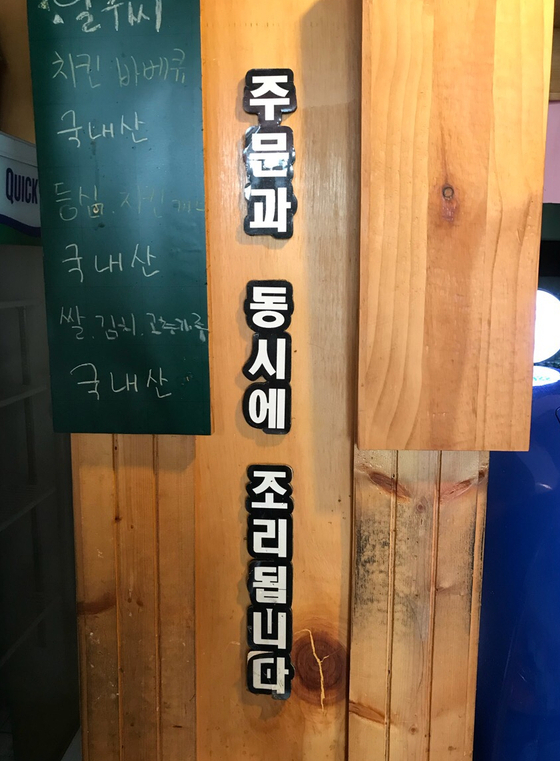 치킨 바베큐
국내산
등심. 치킨까스
국내산
쌀. 김치. 고추가루
국내산
QUICK
주문과 동시에 조리됩니다